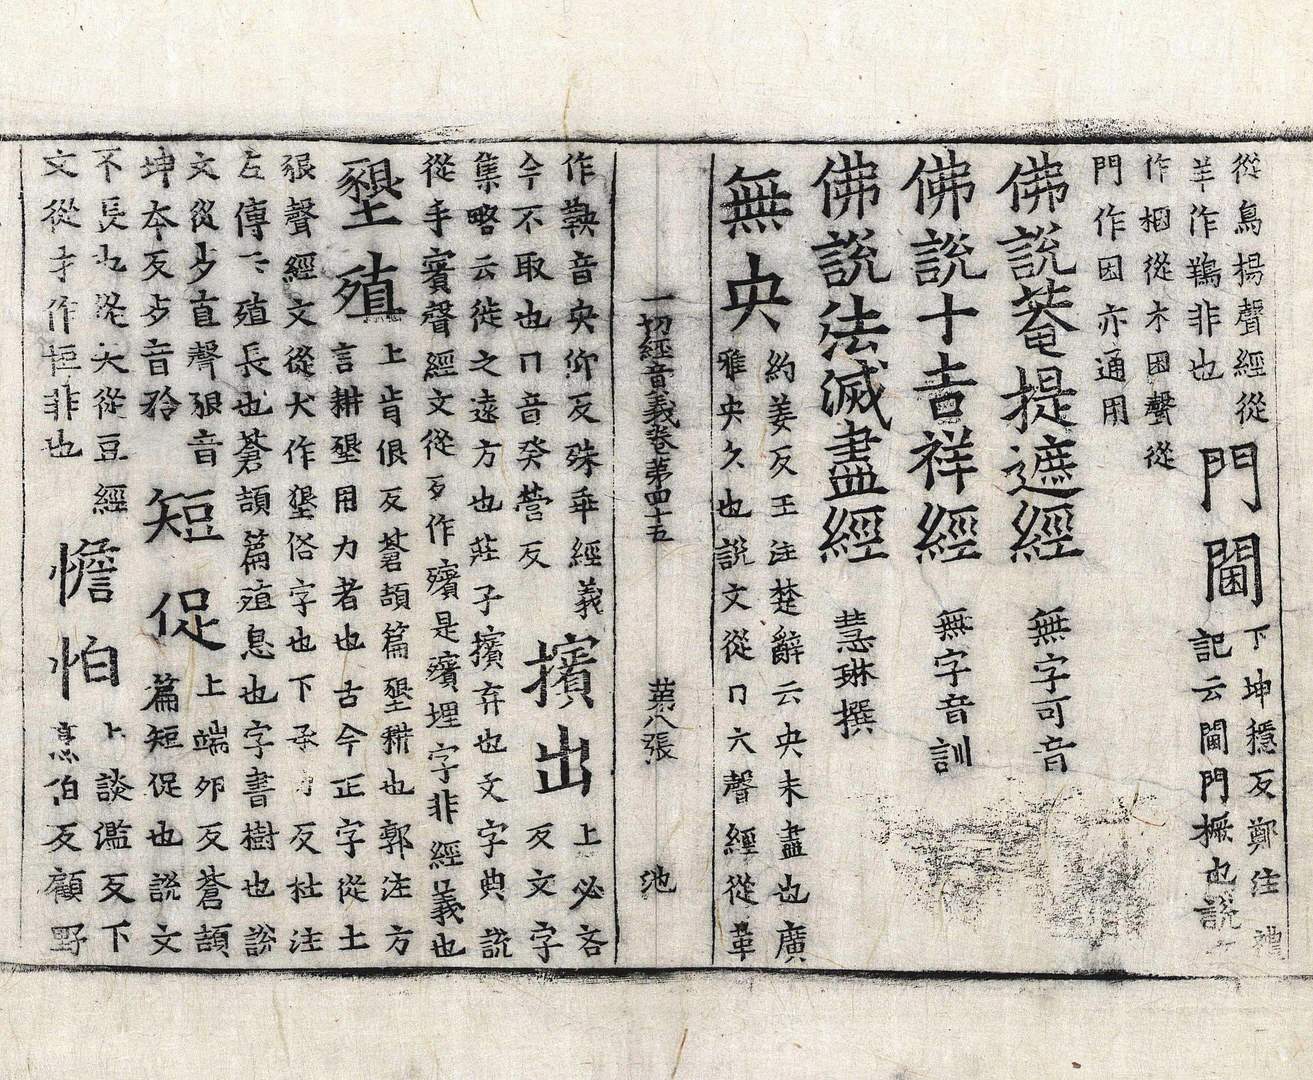 從鳥楊聲經從
羊作鸉非也
門閫
下坤穩反鄭注禮
記云閫門橛也說
作梱從木困聲從
門作困亦通用
佛說菴提遮經 無字可音
佛說十吉祥經 無字音訓
佛說法滅盡經 慧琳撰
無央
約姜反王注楚辭云央未盡也廣
雅央久也說文從冂大聲經從革
一切經音義卷第四十五 第八張 池
作鞅音央仰反殊乖經義
今不取也冂音癸營反
擯出
上必吝
反文字
集略云徙之遠方也莊子擯弃也文字典說
從手賓聲經文從歹作殯是殯埋字非經義也
墾殖
上肯佷反蒼頡篇墾耕也郭注方
言耕墾用力者也古今正字從土
豤聲經文從犬作墾俗字也下承反杜注
左傳云殖長也蒼頡篇殖息也字書樹也說
文從歹直聲豤音
坤本反歹音矜
短促
上端夘反蒼頡
篇短促也說文
不長也從大從豆經
文從才作拒非也
憺怕
上談濫反下
烹伯反顧野